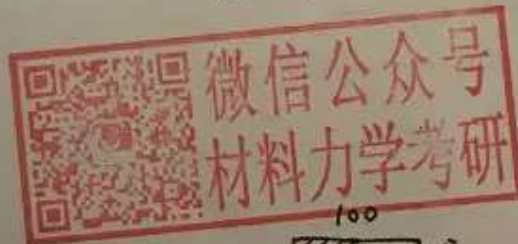 微信公众号
材料力学考研
100